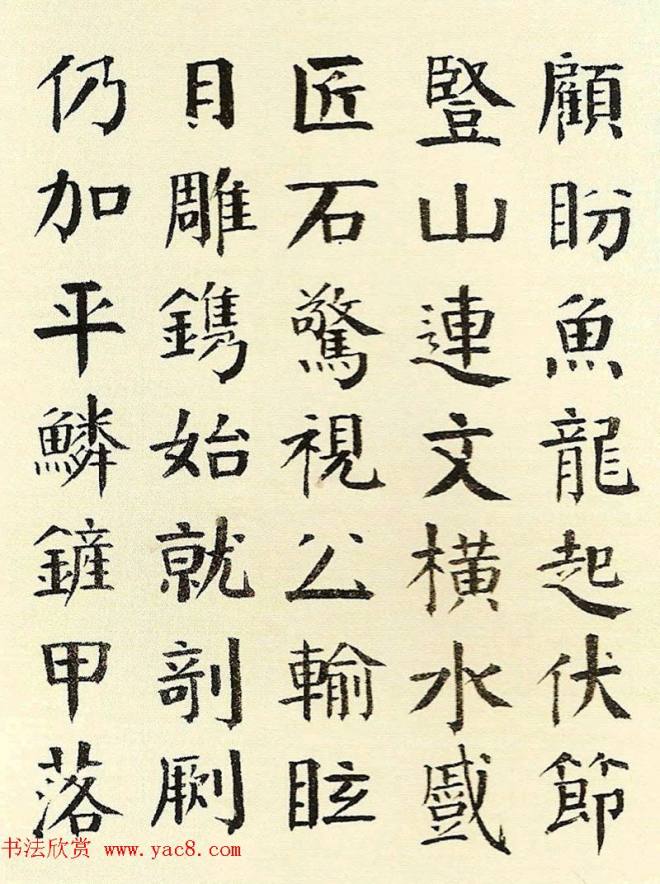 顧盼魚龍起伏節
豎山連文橫水蹙
匠石驚視公輸眩
目雕鐫始就剞劂
仍加平鱗鏟甲落
书法欣赏 www.yac8.com